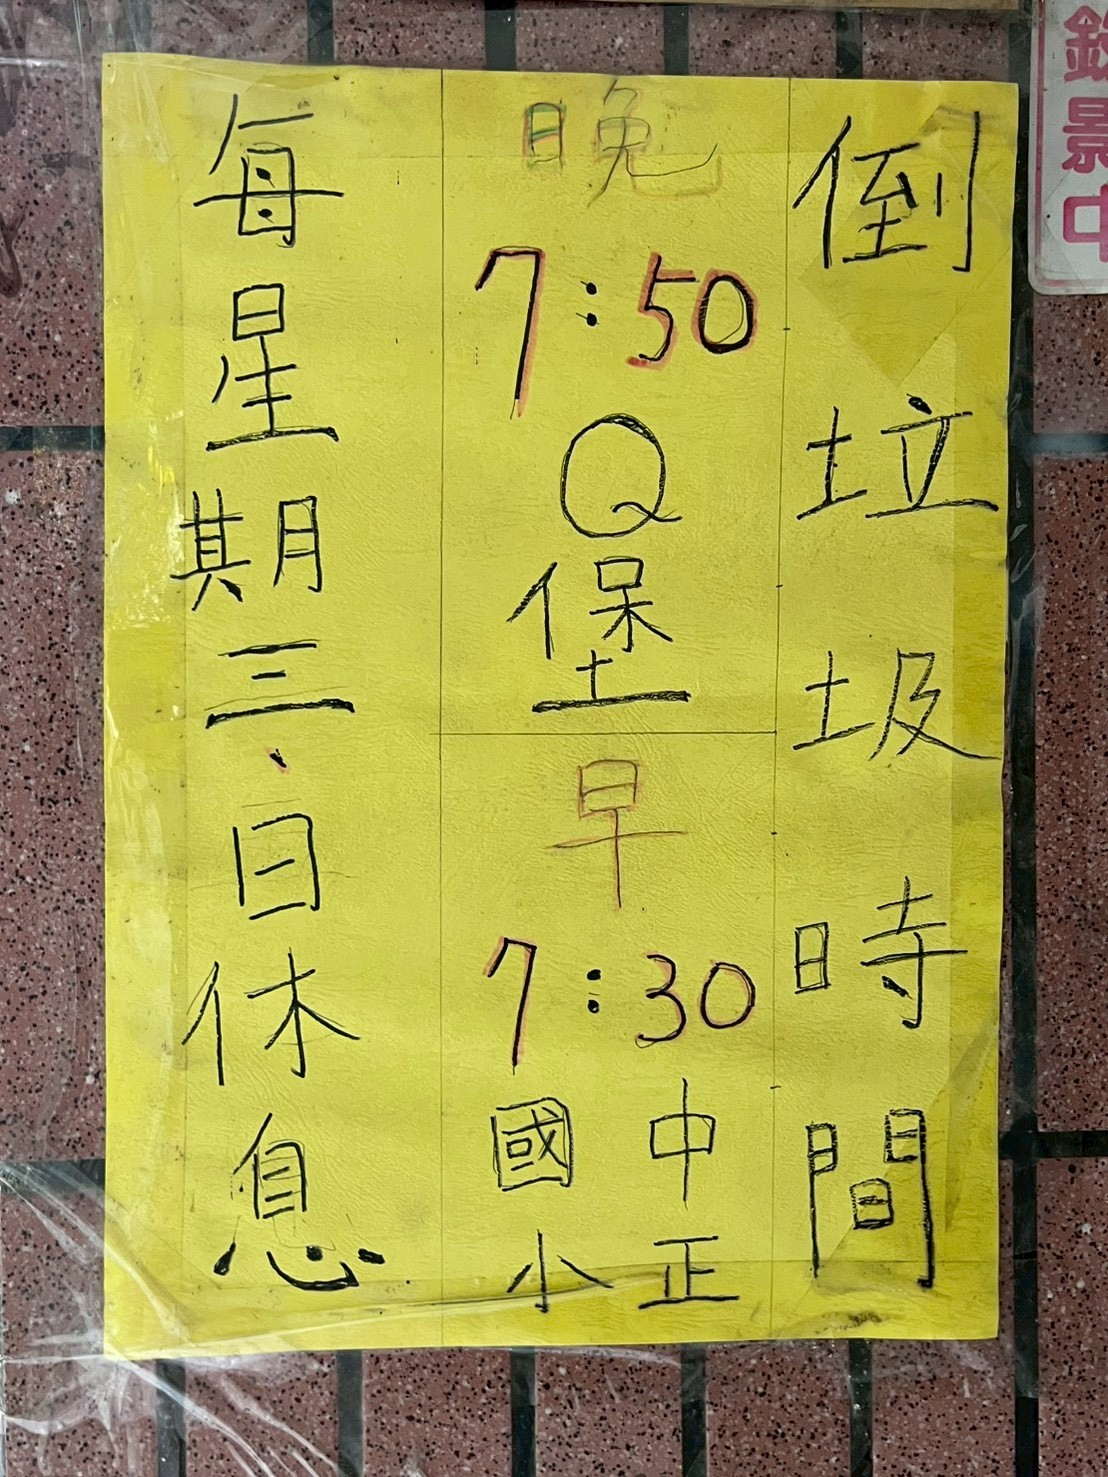 倒垃圾時間
晚
7:50
Q堡
早
7:30
中正
國小
每星期三、日休息
景中